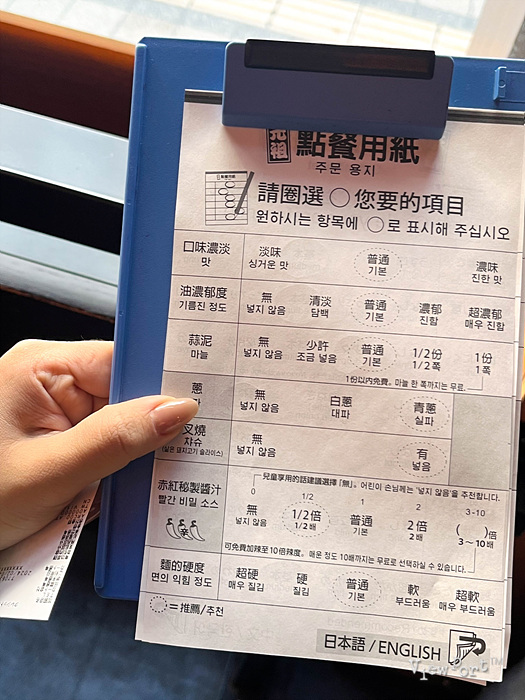 元祖 點餐用紙
주문 용지
請圈選 ○ 您要的項目
원하시는 항목에 ○로 표시해 주십시오
口味濃淡 淡味 普通 濃味
맛 싱거운 맛 기본 진한 맛
油濃郁度 無 清淡 普通 濃郁 超濃郁
기름진 정도 넣지 않음 담백 기본 진함 매우 진함
蒜泥 無 少許 普通 1/2份 1份
마늘 넣지 않음 조금 넣음 기본 1/2쪽 1쪽
1份以內免費。마늘 한 쪽까지는 무료.
蔥 無 白蔥 青蔥
넣지 않음 대파 실파
叉燒 無 有
챠슈 넣지 않음 넣음
(삶은 돼지고기 슬라이스)
兒童享用的話建議選擇「無」。어린이 손님께는 '넣지 않음'을 추천합니다.
0 1/2 1 2 3-10
赤紅秘製醬汁 無 1/2倍 普通 2倍 ( )倍
빨간 비밀 소스 넣지 않음 1/2배 기본 2배 3~10배
辛
可免費加辣至10倍辣度。매운 정도 10배까지는 무료로 선택하실 수 있습니다.
麵的硬度 超硬 硬 普通 軟 超軟
면의 익힘 정도 매우 질김 질김 기본 부드러움 매우 부드러움
○=推薦/추천
日本語/ENGLISH